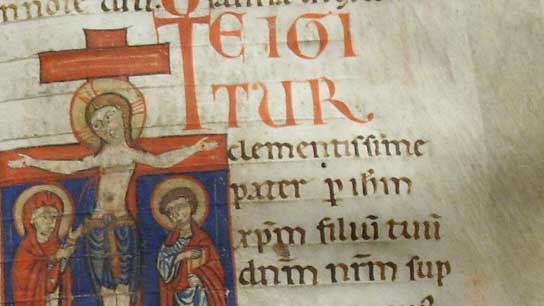 TE IGI
TUR
clementissime
pater p ihm
xpm filiu tuu
dnm nrm sup